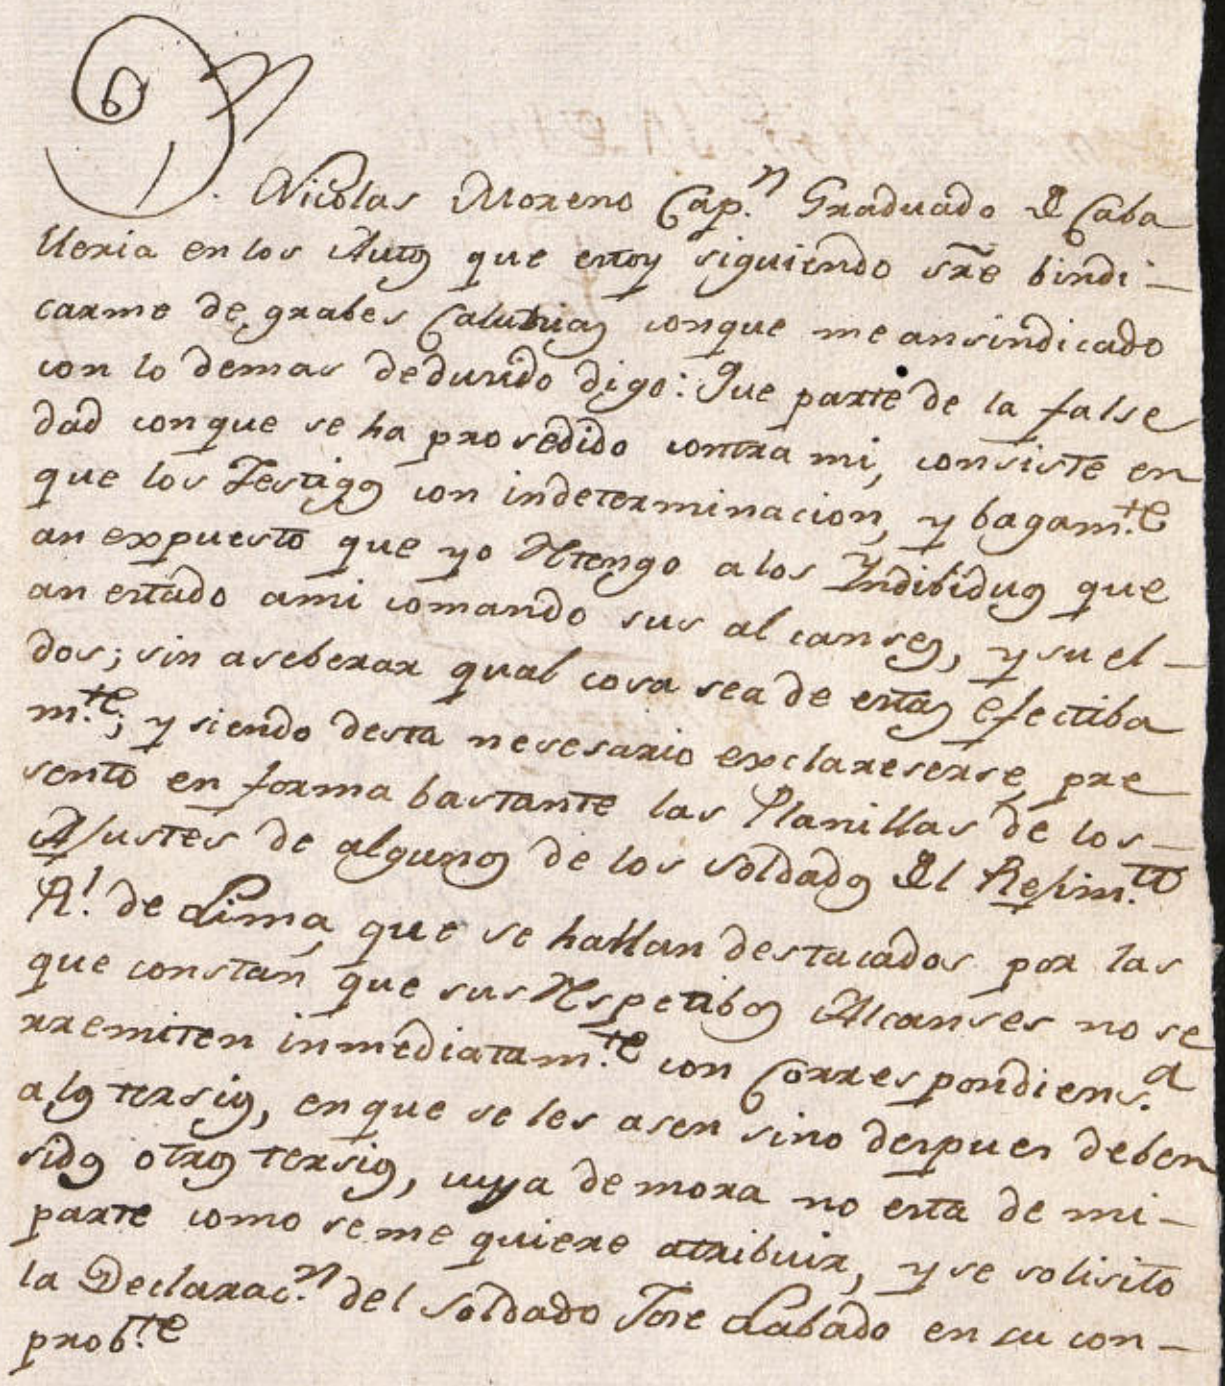 D. Nicolas Moreno Cap.n Graduado de Caba
lleria en los Autos que estoy siguiendo sre bindi-
carme de grabes Calunias conque me ansindicado
con lo demas dedusido digo: Que parte de la false
dad conque se ha prosedido contra mi, consiste en
que los Testigos con indeterminacion, y bagam.te
an expuesto que yo Retengo a los Indibiduos que
an estado ami comando sus alcanses, y suel-
dos; sin aseberar qual cosa sea de estas efectiba
m.te; y siendo desta nesesario exclareserse, pre
sento en forma bastante las Planillas de los-
Ajustes de algunos de los soldados del Rejim.to
R.l de Lima, que se hallan destacados por las
que constan, que sus Respetibos Alcanses no se
rremiten inmediatam.te con Correspondiens.a
alos tersios, enque se les asen sino despues deben
sidos otros tersios, cuya demora no esta de mi-
parte como seme quiere atribuir, y se solisito
la Declarac.n del soldado Jose Labado en su con-
prob.te